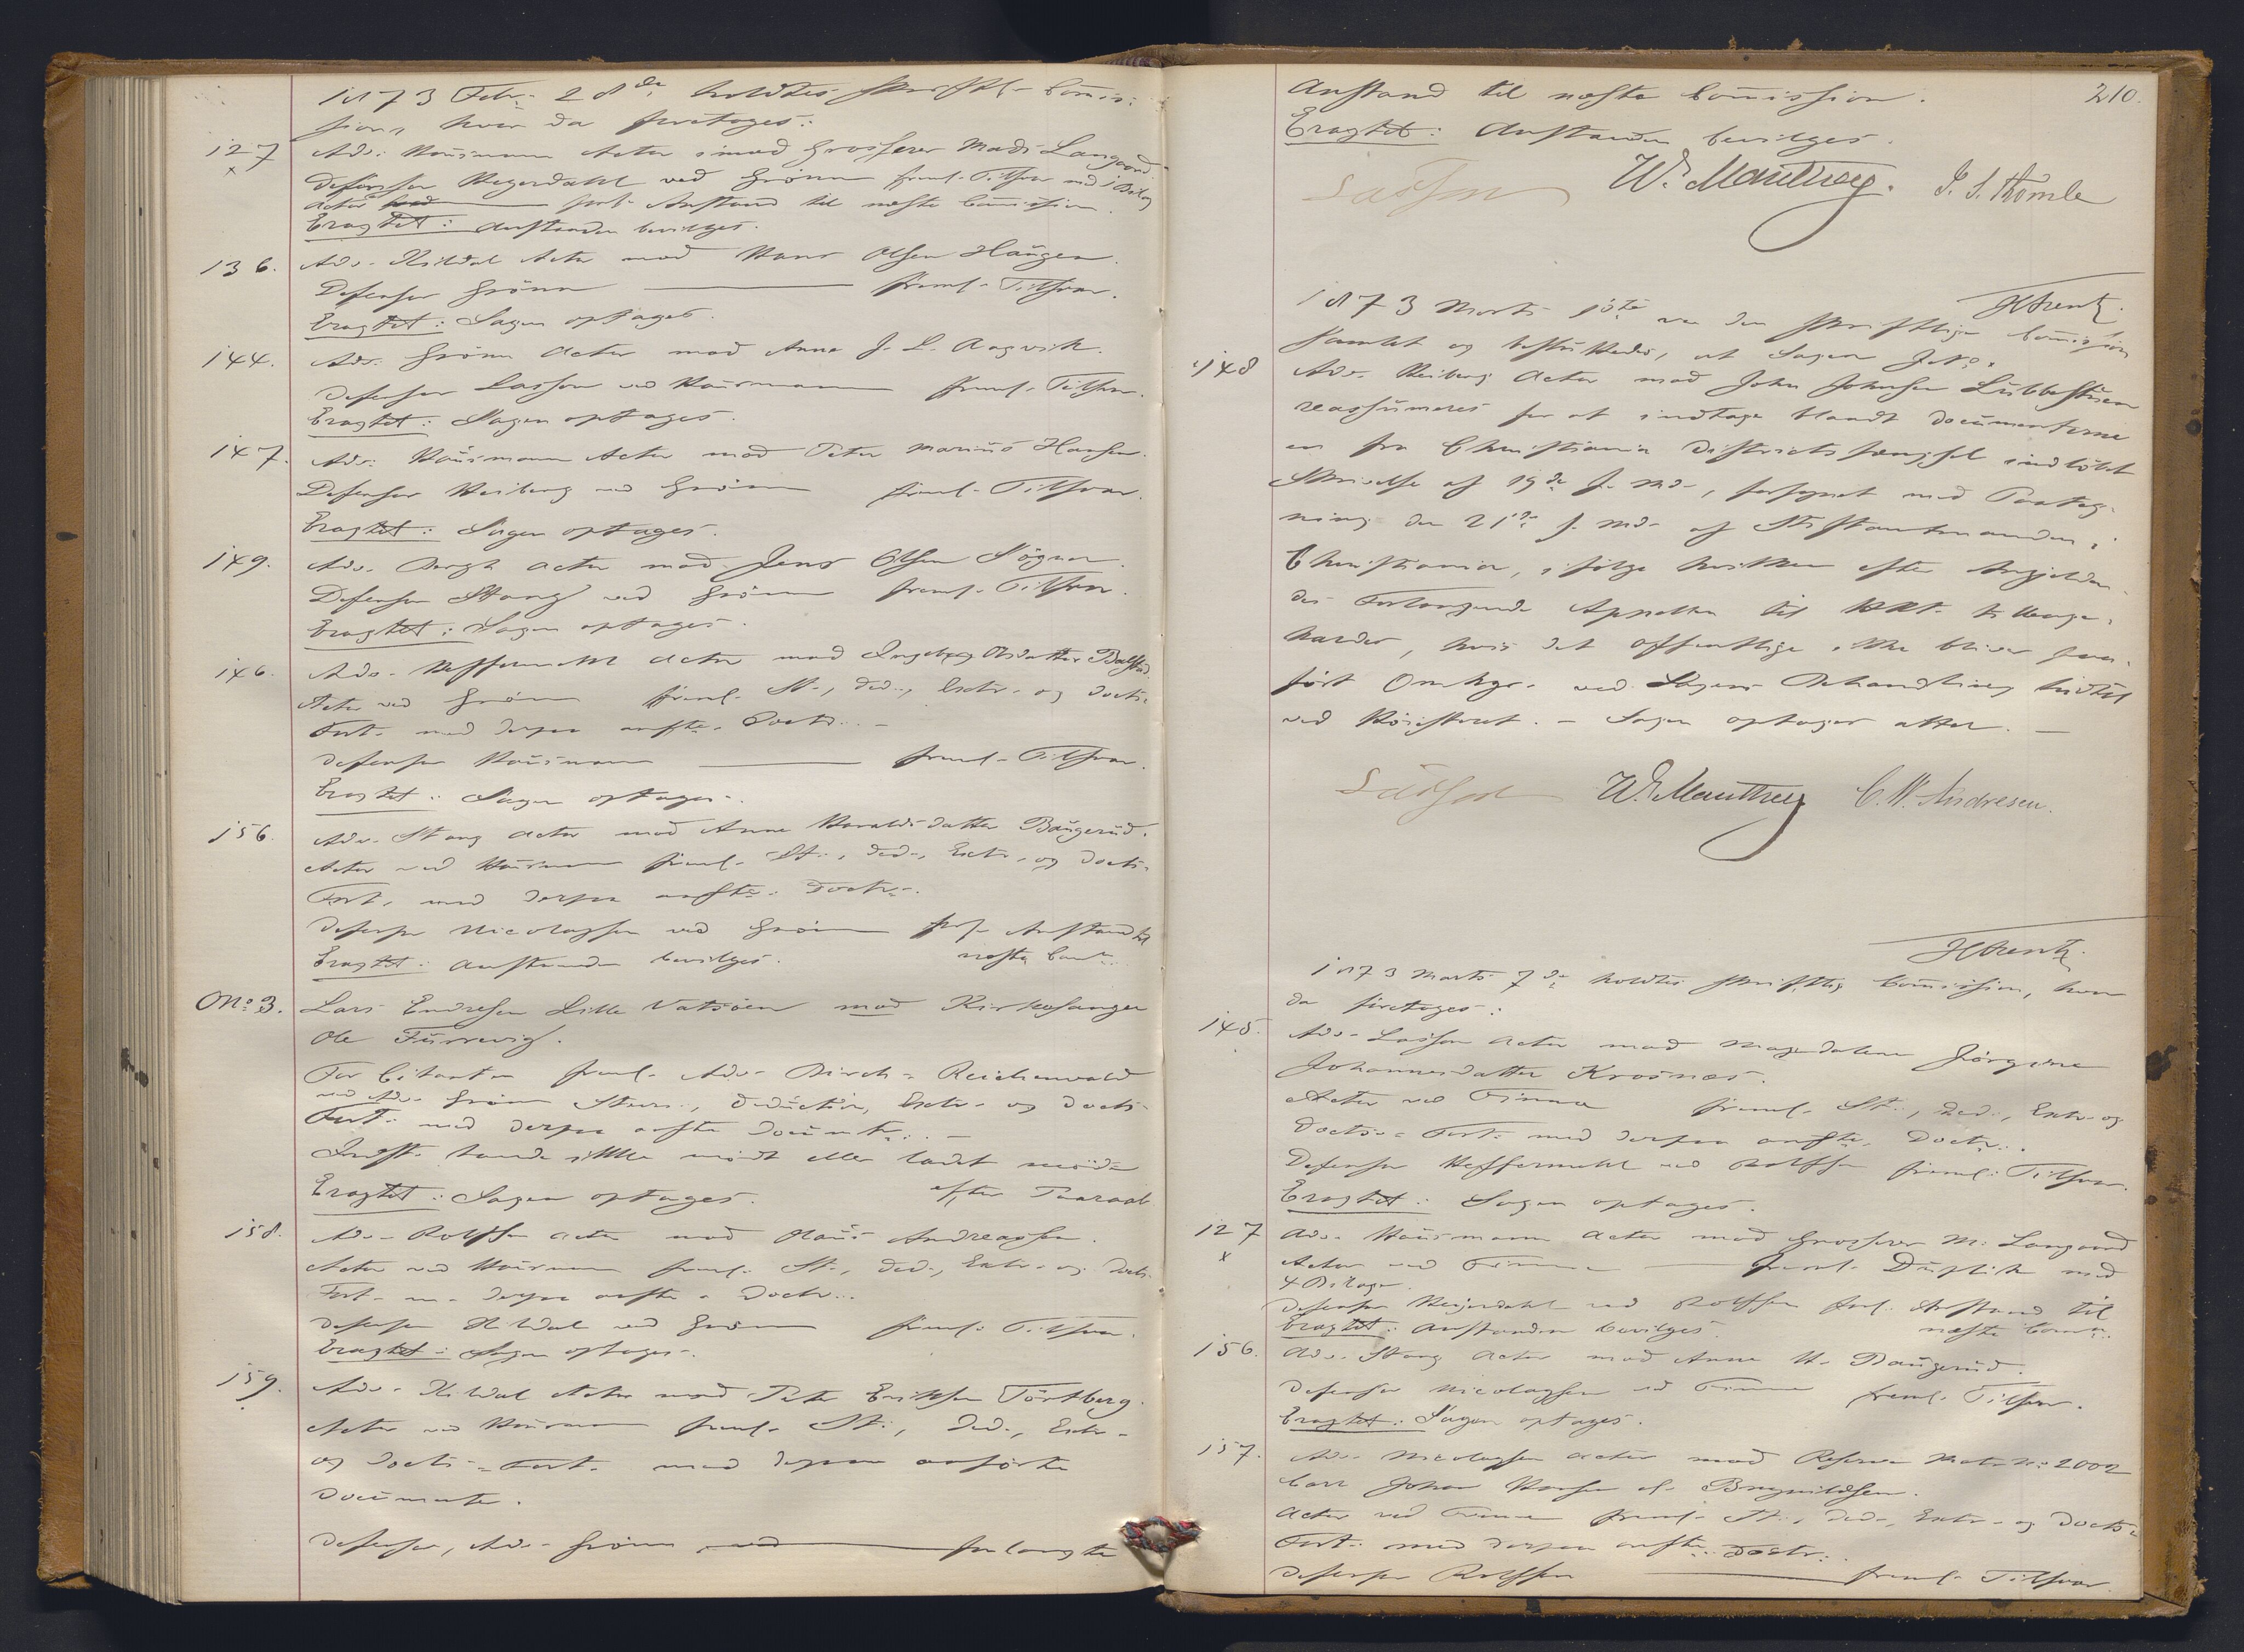 1873 Febr. 28de holdtes skriftl. Commis-
sion, hvor da foretoges:
127 Adv. Hausmann Actor imod Grosserer Mads Langaard.
x Defensor Heyerdahl ved Grönn freml. Tilsvar med 1 Bilag
Actor forl. Anstand til næste Commission.
Eragtet: Anstanden bevilges.
136. Adv. Kildal Actor mod Hans Olsen Haugen.
Defensor Grönn freml. Tilsvar.
Eragtet: Sagen optages.
144. Adv. Grönn Actor mod Anne J. L. Aagvik.
Defensor Lasson ved Hausmann freml. Tilsvar.
Eragtet: Sagen optages.
147. Adv. Hausmann Actor mod Peter Marius Hansen.
Defensor Heiberg ved Grönn freml. Tilsvar.
Eragtet: Sagen optages.
149. Adv. Bergh Actor mod Jens Olsen Sögnen.
Defensor Stang ved Grönn freml. Tilsvar.
Eragtet: Sagen optages.
146. Adv. Heffermehl Actor mod Ingeborg Olsdatter
Actor ved Grönn freml. St., Ded., Extr. og Docts.
Fort. med derpaa anfte. Docts.
Defensor Hausmann freml. Tilsvar.
Eragtet: Sagen optages.
156. Adv. Stang Actor mod Anne Haraldsdatter Baugerud.
Actor ved Hausmann freml. St., Ded., Extr. og Docts.
Fort. med derpaa anfte. Doctr.
Defensor Nicolaysen ved Grönn forl. Anstand til
Eragtet: Anstanden bevilges. næste Comm.
No 3. Lars Endresen Lille Vatsöen mod Kirkesanger
Ole Furrevig.
For Citanten freml. Adv. Birch-Reichenwald
ved Adv. Grönn Stevn., Deduction, Extr. og Docts.
Fort. med derpaa anfte Documtr.
Indst. havde ikke mödt eller ladet möde
Eragtet: Sagen optages. efter Paaraab
158. Adv. Rolfsen Actor mod Claus Andreassen.
Actor ved Hausmann freml. St., Ded., Extr. og Docts.
Fort. m. derpaa anfte. Doctr.
Defensor Kildal ved Grönn freml. Tilsvar.
Eragtet: Sagen optages.
159. Adv. Kildal Actor mod Peter Eriksen Törtberg.
Actor ved Hausmann freml. St., Ded., Extr.
og Docts. Fort. med derpaa anförte
Documenter.
Defensor, Adv. Grönn forlangte
210.
Anstand til næste Commission.
Eragtet: Anstanden bevilges.
Lasson W. Manthey. J. S. Thomle
H Arentz.
1873 Marts 1ste var den skriftlige Commission
samlet og besluttedes, at Sagen J. No.
148 Adv. Heiberg Actor mod John Johnsen Lübbestuen
reassumeres for at indtage blandt Documenterne
en fra Christiania Districtsfængsel indlöbet
Skrivelse af 19de f. Md., forsynet med Paateg-
ning den 21de f. Md. af Stiftamtmanden i
Christiania, ifölge hvilken efter Angjelden-
des Forlangende Appellen til HRt. tilbage-
kaldes, hvis det Offentlige ikke bliver paa-
fört Omkgr. ved Sagens Behandling hidtil
ved Höiesteret. - Sagen optages atter.
Lasson W. Manthey C. N. Andresen.
H Arentz.
1873 Marts 7de holdtes skriftlig Commission, hvor
da foretoges:
145. Adv. Lasson Actor mod Magdalene Jörgine
Johannesdatter Krosnæs.
Actor ved Finne freml. St., Ded., Extr. og
Docts. Fort. med derpaa anfte. Doctr.
Defensor Heffermehl ved Rolfsen freml. Tilsvar.
Eragtet: Sagen optages.
127 Adv. Hausmann Actor mod Grosserer M. Langaard
x Actor ved Finne freml. Duplik med
4 Bilage.
Defensor Heyerdahl ved Rolfsen forl. Anstand til
Eragtet: Anstanden bevilges. næste Comm.
156. Adv. Stang Actor mod Anne H. Baugerud.
Defensor Nicolaysen ved Finne freml. Tilsvar.
Eragtet: Sagen optages.
157. Adv. Nicolaysen Actor mod Reserve Matr. No. 2002
Carl Johan Hansen el. Brynildsen.
Actor ved Finne freml. St., Ded., Extr. og Docts.
Fort. med derpaa anfte. Doctr.
Defensor Rolfsen freml. Tilsvar.